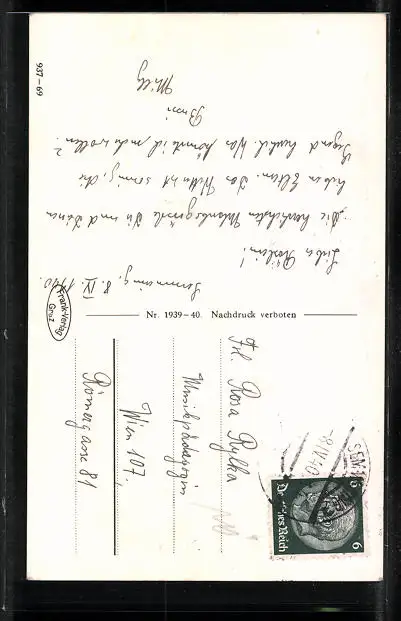 Semmering, 8. IV. 1940.
Liebes Röslein!
Die herzlichsten Urlaubsgrüße Dir und Deinen
lieben Eltern. Das Wetter ist sonnig, die
Gegend herrlich. Was könnte ich mehr wollen?
Bussi
Milly
937-69
Frank-Verlag
Graz
Nr. 1939-40. Nachdruck verboten
Frl. Rosa Rylka
Musikpädagogin
Wien 107.
Römergasse 81
Deutsches Reich
6